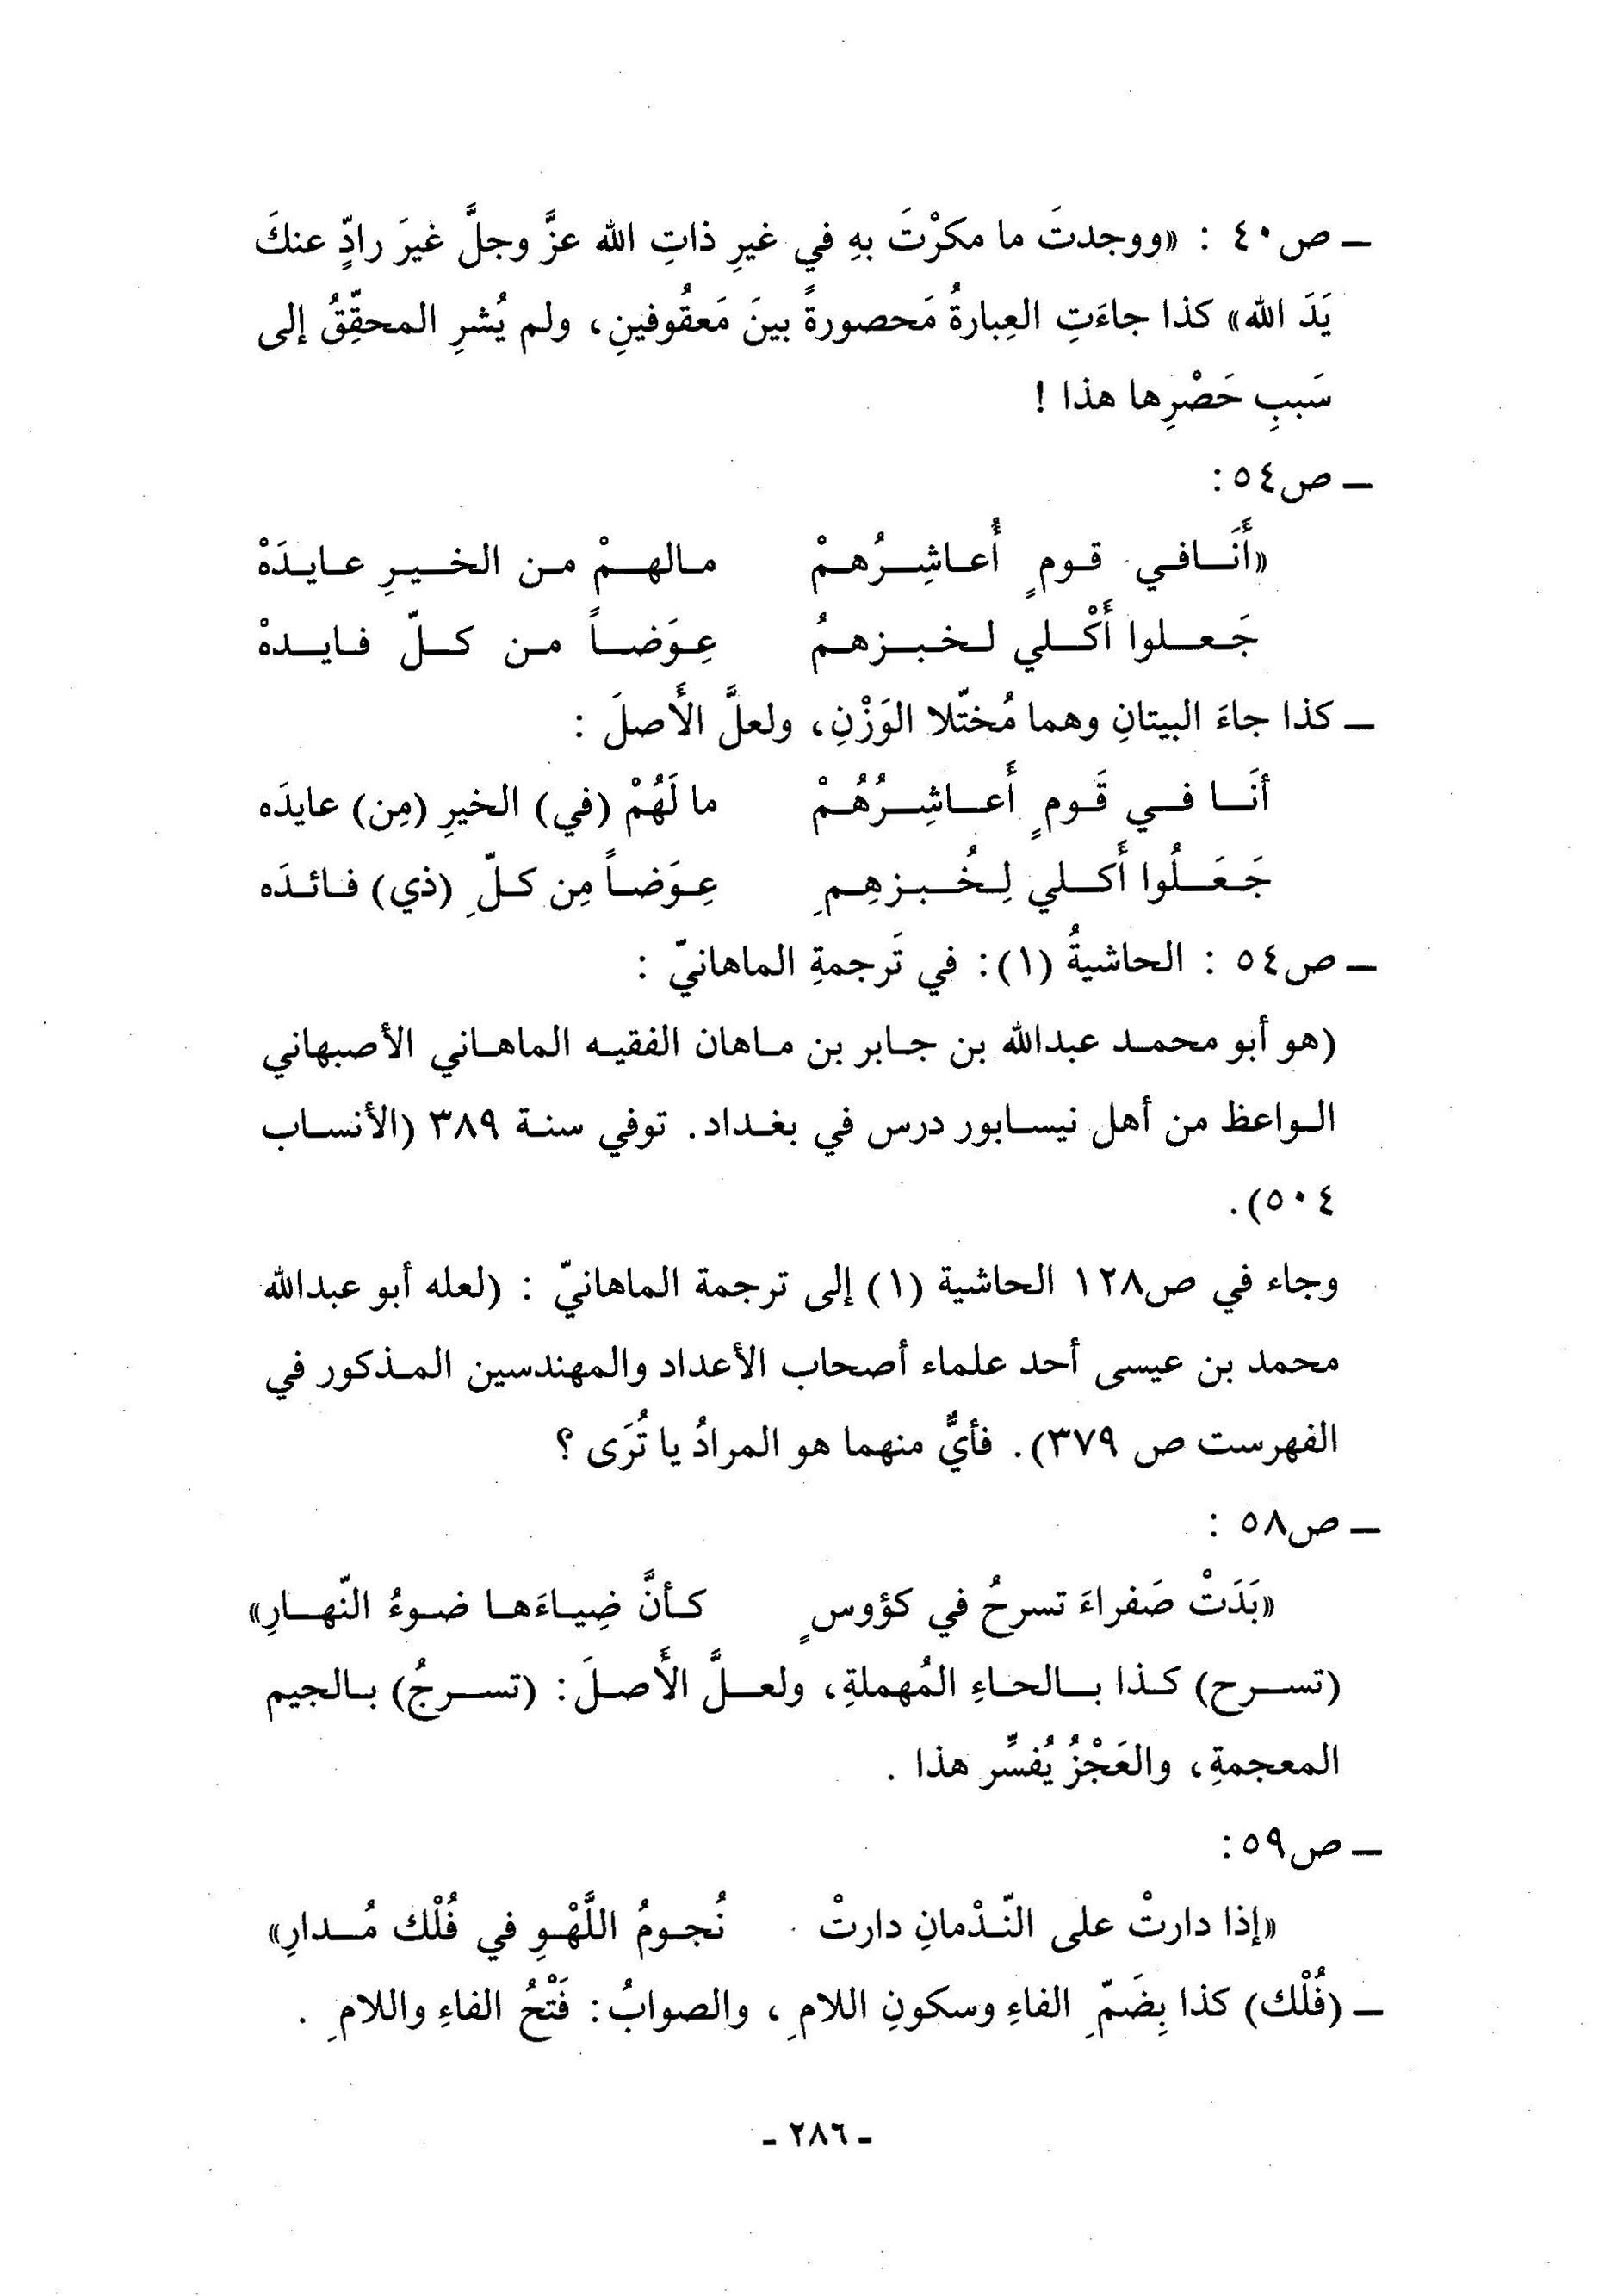 ــ ص٤٠ : «ووجدتَ ما مكرْتَ بهِ في غيرِ ذاتِ الله عزَّ وجلَّ غيرَ رادٍّ عنكَ
يَدَ الله» كذا جاءَتِ العِبارةُ مَحصورةً بينَ مَعقُوفينِ، ولم يُشرِ المحقِّقُ إلى
سَببِ حَصْرِها هذا !
ــ ص٥٤ :
«أَنَـافي قومٍ أُعاشِرُهمْ مالهمْ من الخيرِ عايدَهْ
جَعلوا أَكْلي لخبزهمُ عِوَضاً من كلّ فايدهْ
ــ كذا جاءَ البيتانِ وهما مُختّلا الوَزْنِ، ولعلَّ الأَصلَ :
أنَا في قَومٍ أَعاشِرُهُمْ ما لَهُمْ (في) الخيرِ (مِن) عايدَه
جَعَلُوا أَكلي لِخُبزِهِمِ عِوَضاً مِن كلِّ (ذي) فائدَه
ــ ص٥٤ : الحاشيةُ (١): في تَرجمةِ الماهانيّ :
(هو أبو محمد عبدالله بن جابر بن ماهان الفقيه الماهاني الأصبهاني
الواعظ من أهل نيسابور درس في بغداد. توفي سنة ٣٨٩ (الأنساب
٥٠٤).
وجاء في ص١٢٨ الحاشية (١) إلى ترجمة الماهانيّ : (لعله أبو عبدالله
محمد بن عيسى أحد علماء أصحاب الأعداد والمهندسين المذكور في
الفهرست ص ٣٧٩). فأيٌّ منهما هو المرادُ يا تُرَى ؟
ــ ص٥٨ :
«بَدَتْ صَفراءَ تسرحُ في كؤوسٍ كأنَّ ضِياءَها ضوءُ النّهارِ»
(تسرح) كذا بالحاءِ المُهملةِ، ولعلَّ الأَصلَ: (تسرجُ) بالجيم
المعجمةِ، والعَجْزُ يُفسِّر هذا .
ــ ص٥٩ :
«إذا دارتْ على النّدْمانِ دارتْ نُجومُ اللَّهْوِ في فُلْك مُدارِ»
ــ (فُلْك) كذا بِضَمِّ الفاءِ وسكونِ اللامِ، والصوابُ: فَتْحُ الفاءِ واللامِ .
- ٢٨٦ -